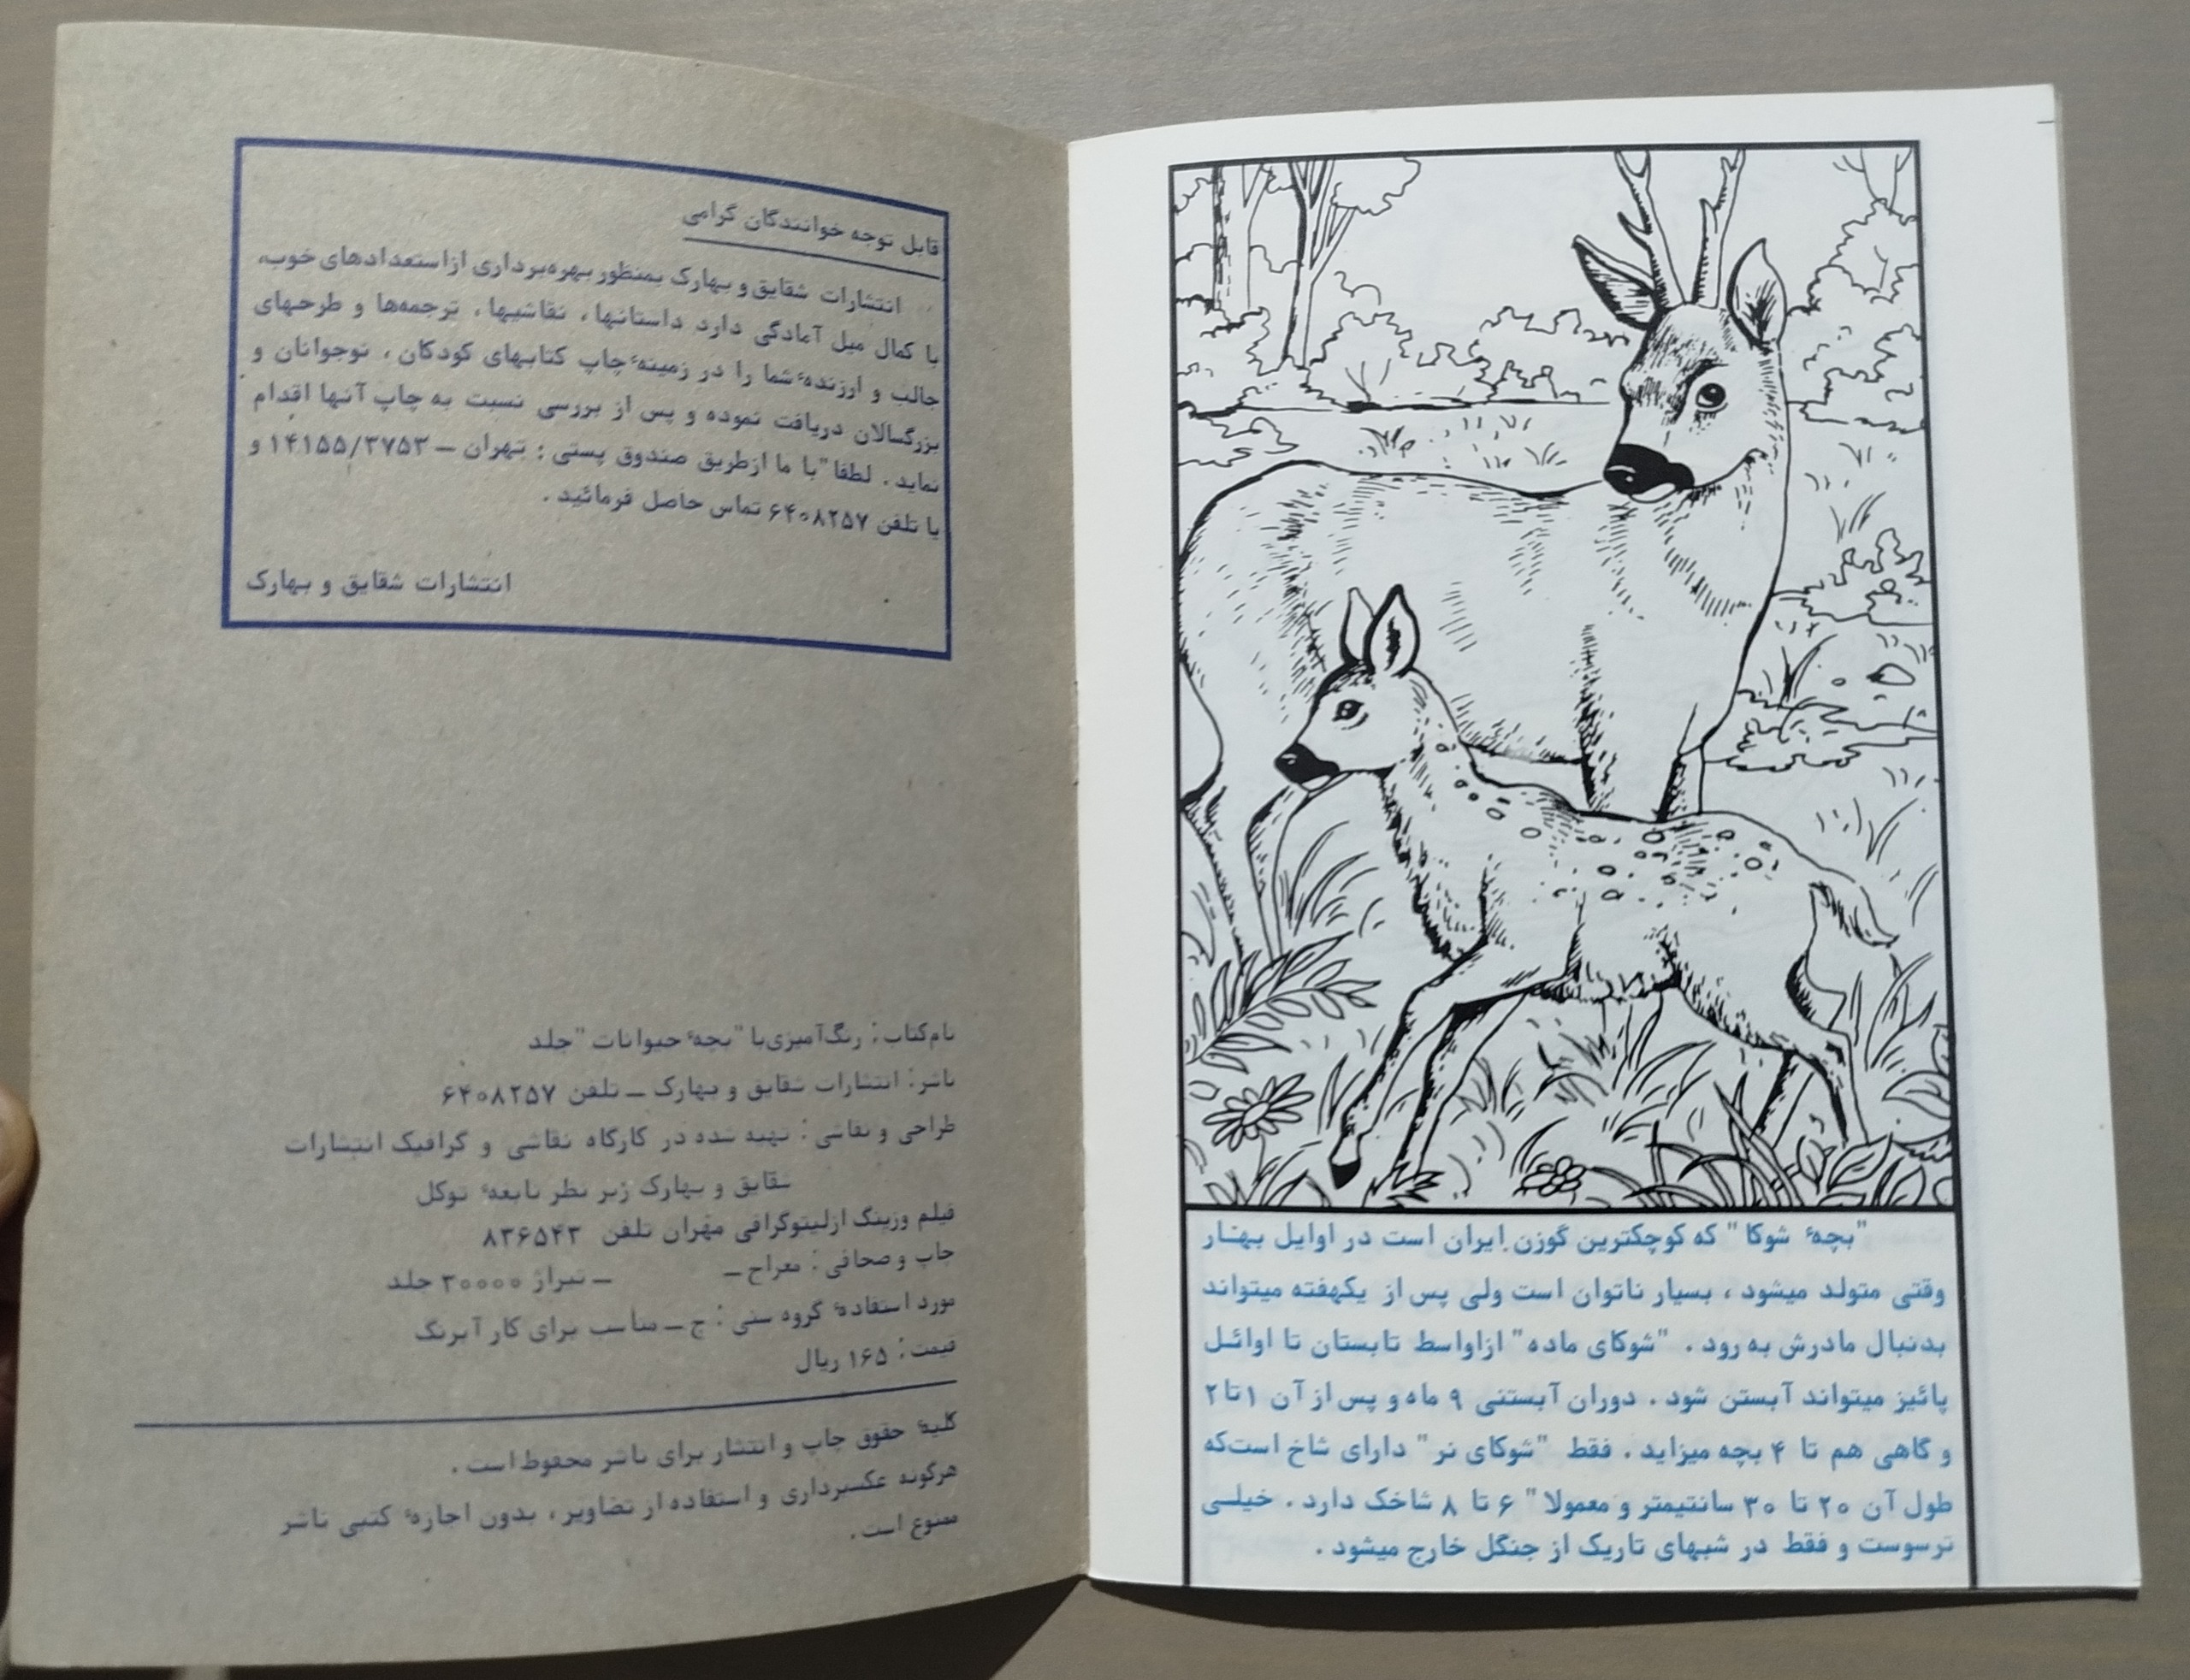 قابل توجه خوانندگان گرامی
انتشارات شقایق و بهارک بمنظور بهره‌برداری ازاستعدادهای خوب،
با کمال میل آمادگی دارد داستانها، نقاشیها، ترجمه‌ها و طرحهای
جالب و ارزندهٔ شما را در زمینهٔ چاپ کتابهای کودکان، نوجوانان و
بزرگسالان دریافت نموده و پس از بررسی نسبت به چاپ آنها اقدام
نماید. لطفا" با ما ازطریق صندوق پستی: تهران ـ ۱۴۱۵۵/۳۷۵۳ و
یا تلفن ۶۴۰۸۲۵۷ تماس حاصل فرمائید.
انتشارات شقایق و بهارک
نام‌کتاب: رنگ‌آمیزی‌با "بچهٔ حیوانات" جلد
ناشر: انتشارات شقایق و بهارک ـ تلفن ۶۴۰۸۲۵۷
طراحی و نقاشی: تهیه شده در کارگاه نقاشی و گرافیک انتشارات
شقایق و بهارک زیر نظر نابغهٔ توکل
فیلم وزینگ ازلیتوگرافی مهران تلفن ۸۳۶۵۴۳
چاپ و صحافی: معراج ـ ـ تیراژ ۳۰۰۰۰ جلد
مورد استفادهٔ گروه سنی: ج ـ مناسب برای کار آبرنگ
قیمت: ۱۶۵ ریال
کلیهٔ حقوق چاپ و انتشار برای ناشر محفوظ است.
هرگونه عکسبرداری و استفاده از تصاویر، بدون اجازهٔ کتبی ناشر
ممنوع است.
"بچهٔ شوکا" که کوچکترین گوزن ایران است در اوایل بهار
وقتی متولد میشود، بسیار ناتوان است ولی پس از یکهفته میتواند
بدنبال مادرش به رود. "شوکای ماده" ازاواسط تابستان تا اوائل
پائیز میتواند آبستن شود. دوران آبستنی ۹ ماه و پس از آن ۱ تا ۲
و گاهی هم تا ۴ بچه میزاید. فقط "شوکای نر" دارای شاخ است‌که
طول آن ۲۰ تا ۳۰ سانتیمتر و معمولا" ۶ تا ۸ شاخک دارد. خیلی
ترسوست و فقط در شبهای تاریک از جنگل خارج میشود.